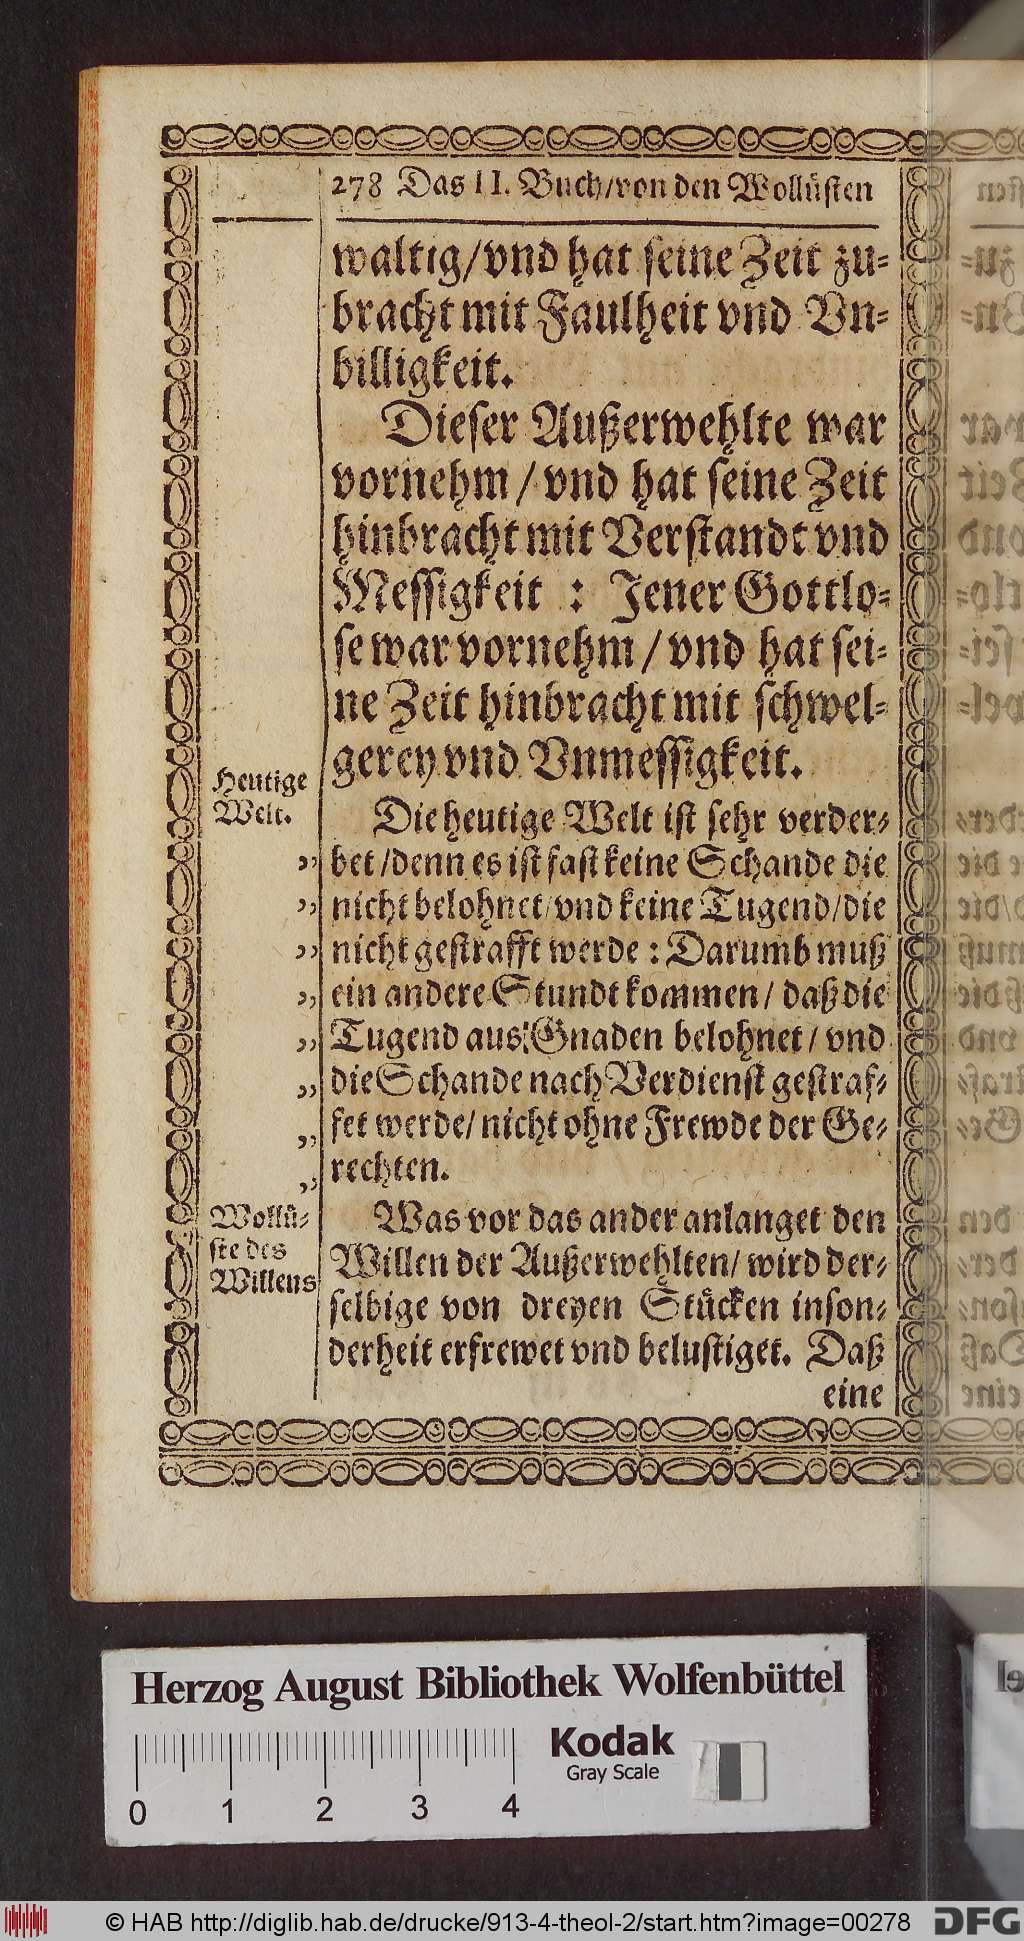 278 Das II. Buch/von den Wollüsten
waltig/vnd hat seine Zeit zu-
bracht mit Faulheit vnd Vn-
billigkeit.
Dieser Außerwehlte war
vornehm / vnd hat seine Zeit
hinbracht mit Verstandt vnd
Messigkeit : Jener Gottlo-
se war vornehm / vnd hat sei-
ne Zeit hinbracht mit schwel-
gerey vnd Vnmessigkeit.
Heutige
Welt.
Die heutige Welt ist sehr verder-
bet /denn es ist fast keine Schande die
nicht belohnet/vnd keine Tugend/die
nicht gestrafft werde : Darumb muß
ein andere Stundt kommen / daß die
Tugend aus Gnaden belohnet / vnd
die Schande nach Verdienst gestraf-
fet werde/ nicht ohne Frewde der Ge-
rechten.
Wollü-
ste des
Willens
Was vor das ander anlanget den
Willen der Außerwehlten/ wird der-
selbige von dreyen Stücken inson-
derheit erfrewet vnd belustiget. Daß
eine
Herzog August Bibliothek Wolfenbüttel
Kodak
Gray Scale
0 1 2 3 4
© HAB http://diglib.hab.de/drucke/913-4-theol-2/start.htm?image=00278
DFG